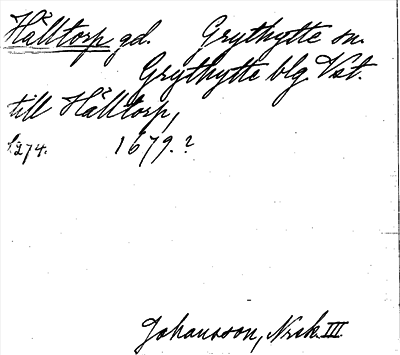 Hälltorp, gd. Grythytte sn.
Grythytte blg Vst.
till Hälltorp,
s. 274. 1679.?
Johansson, Nrck III